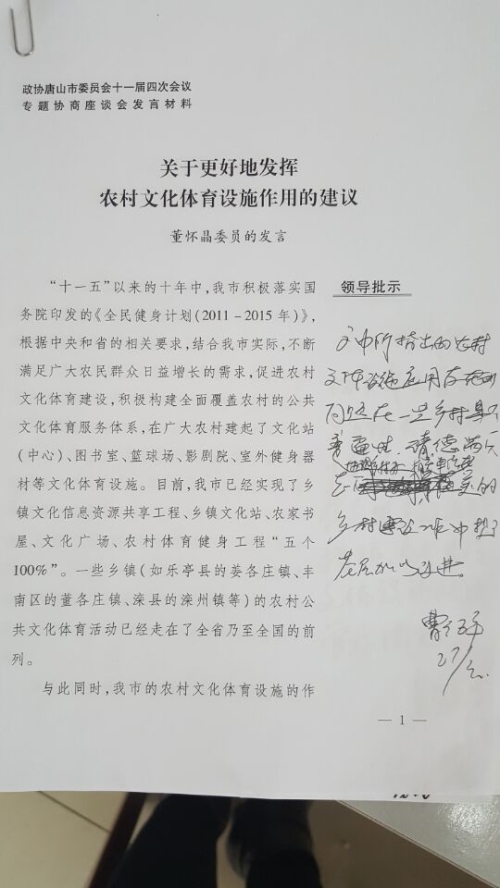 政协唐山市委员会十一届四次会议
专题协商座谈会发言材料
关于更好地发挥
农村文化体育设施作用的建议
董怀晶委员的发言
“十一五”以来的十年中,我市积极落实国
务院印发的《全民健身计划(2011-2015年)》,
根据中央和省的相关要求,结合我市实际,不断
满足广大农民群众日益增长的需求,促进农村
文化体育建设,积极构建全面覆盖农村的公共
文化体育服务体系,在广大农村建起了文化站
(中心)、图书室、篮球场、影剧院、室外健身器
材等文化体育设施。目前,我市已经实现了乡
镇文化信息资源共享工程、乡镇文化站、农家书
屋、文化广场、农村体育健身工程“五个
100%”。一些乡镇(如乐亭县的姜各庄镇、丰
南区的董各庄镇、滦县的滦州镇等)的农村公
共文化体育活动已经走在了全省乃至全国的前
列。
与此同时,我市的农村文化体育设施的作
领导批示
文中所指出的农村
文体设施应用存在
问题在一些乡村具有
普遍性.请德
美的
乡村建设工作中
加以改进.
27/
— 1 —